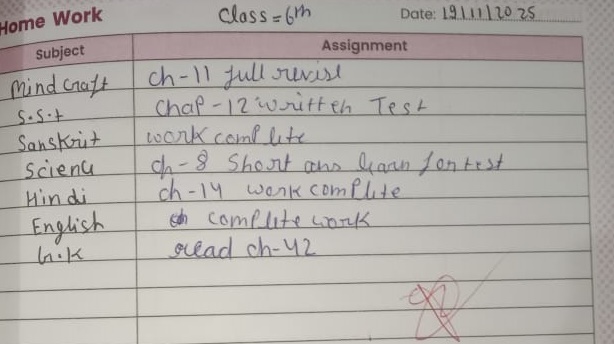 Home Work Class = 6th Date: 19/11/2025
Subject Assignment
Mind Craft ch-11 full revise
S.S.t Chap-12 written Test
Sanskrit work complite
Science ch-8 Short ans learn for test
Hindi ch-14 work complite
English complite work
G.K read ch-42